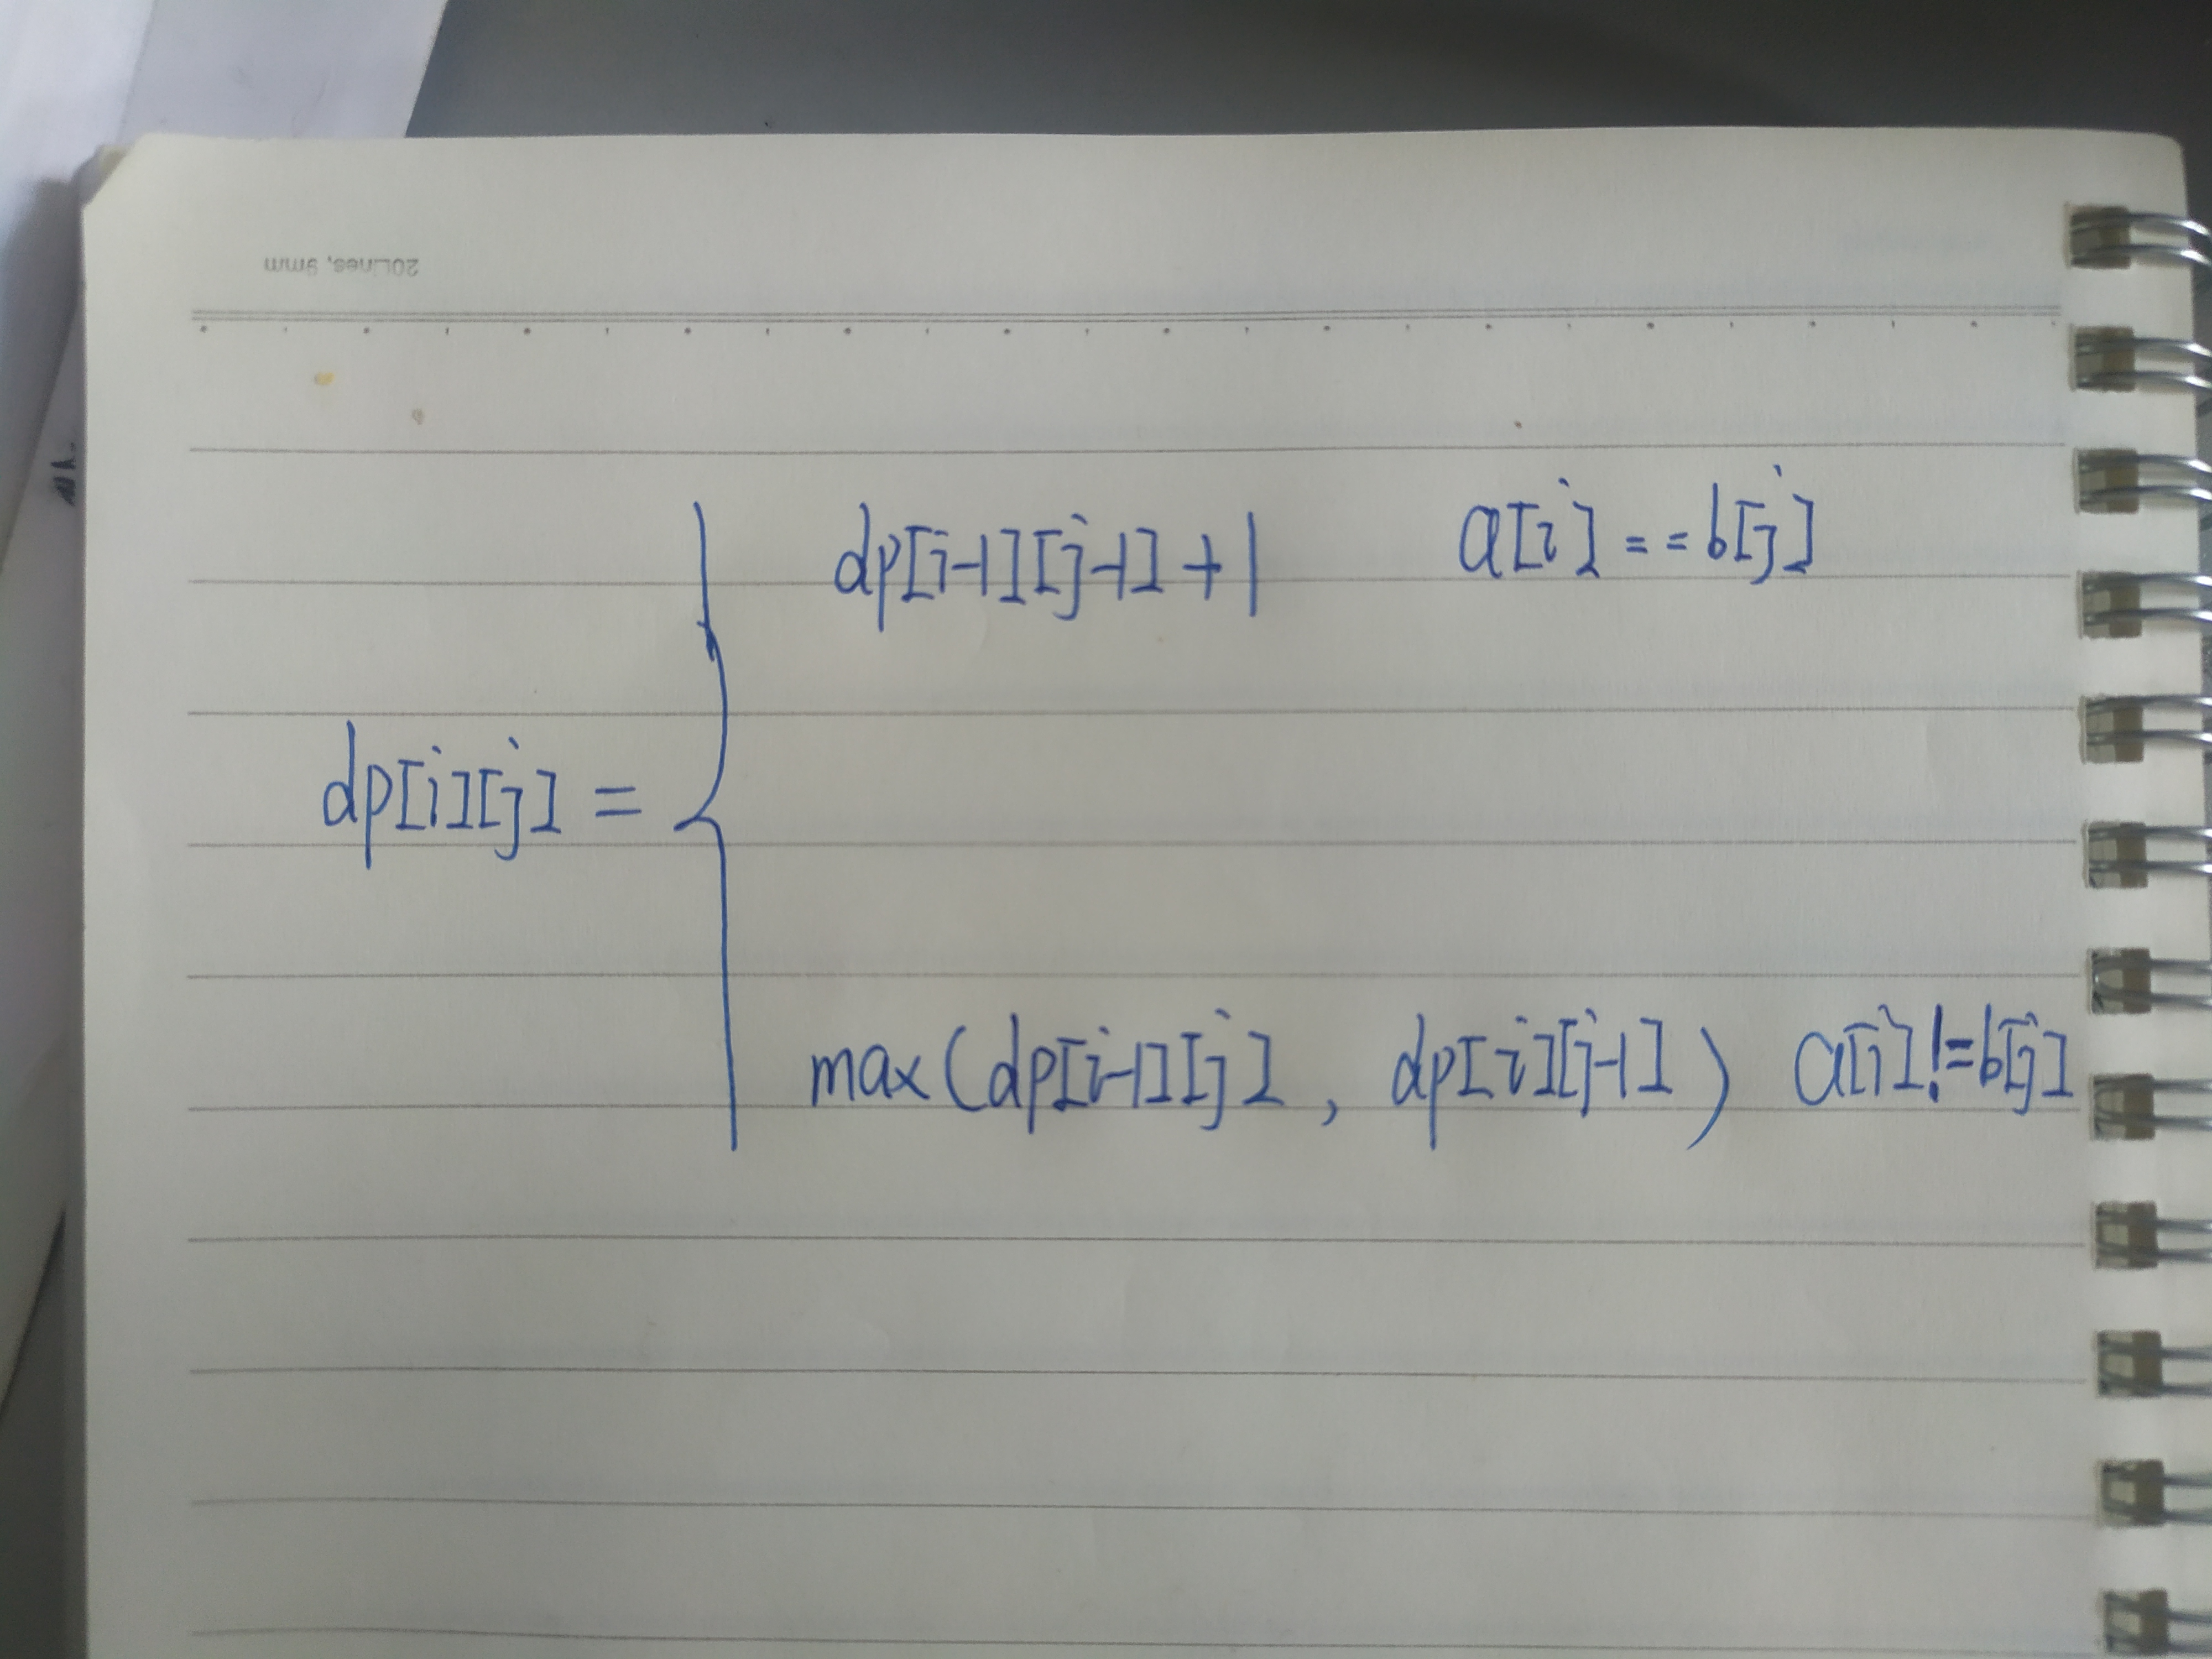 20Lines, 9mm
dp[i-1][j-1]+1 a[i]==b[j]
dp[i][j]=
max(dp[i-1][j], dp[i][j-1]) a[i]!=b[j]